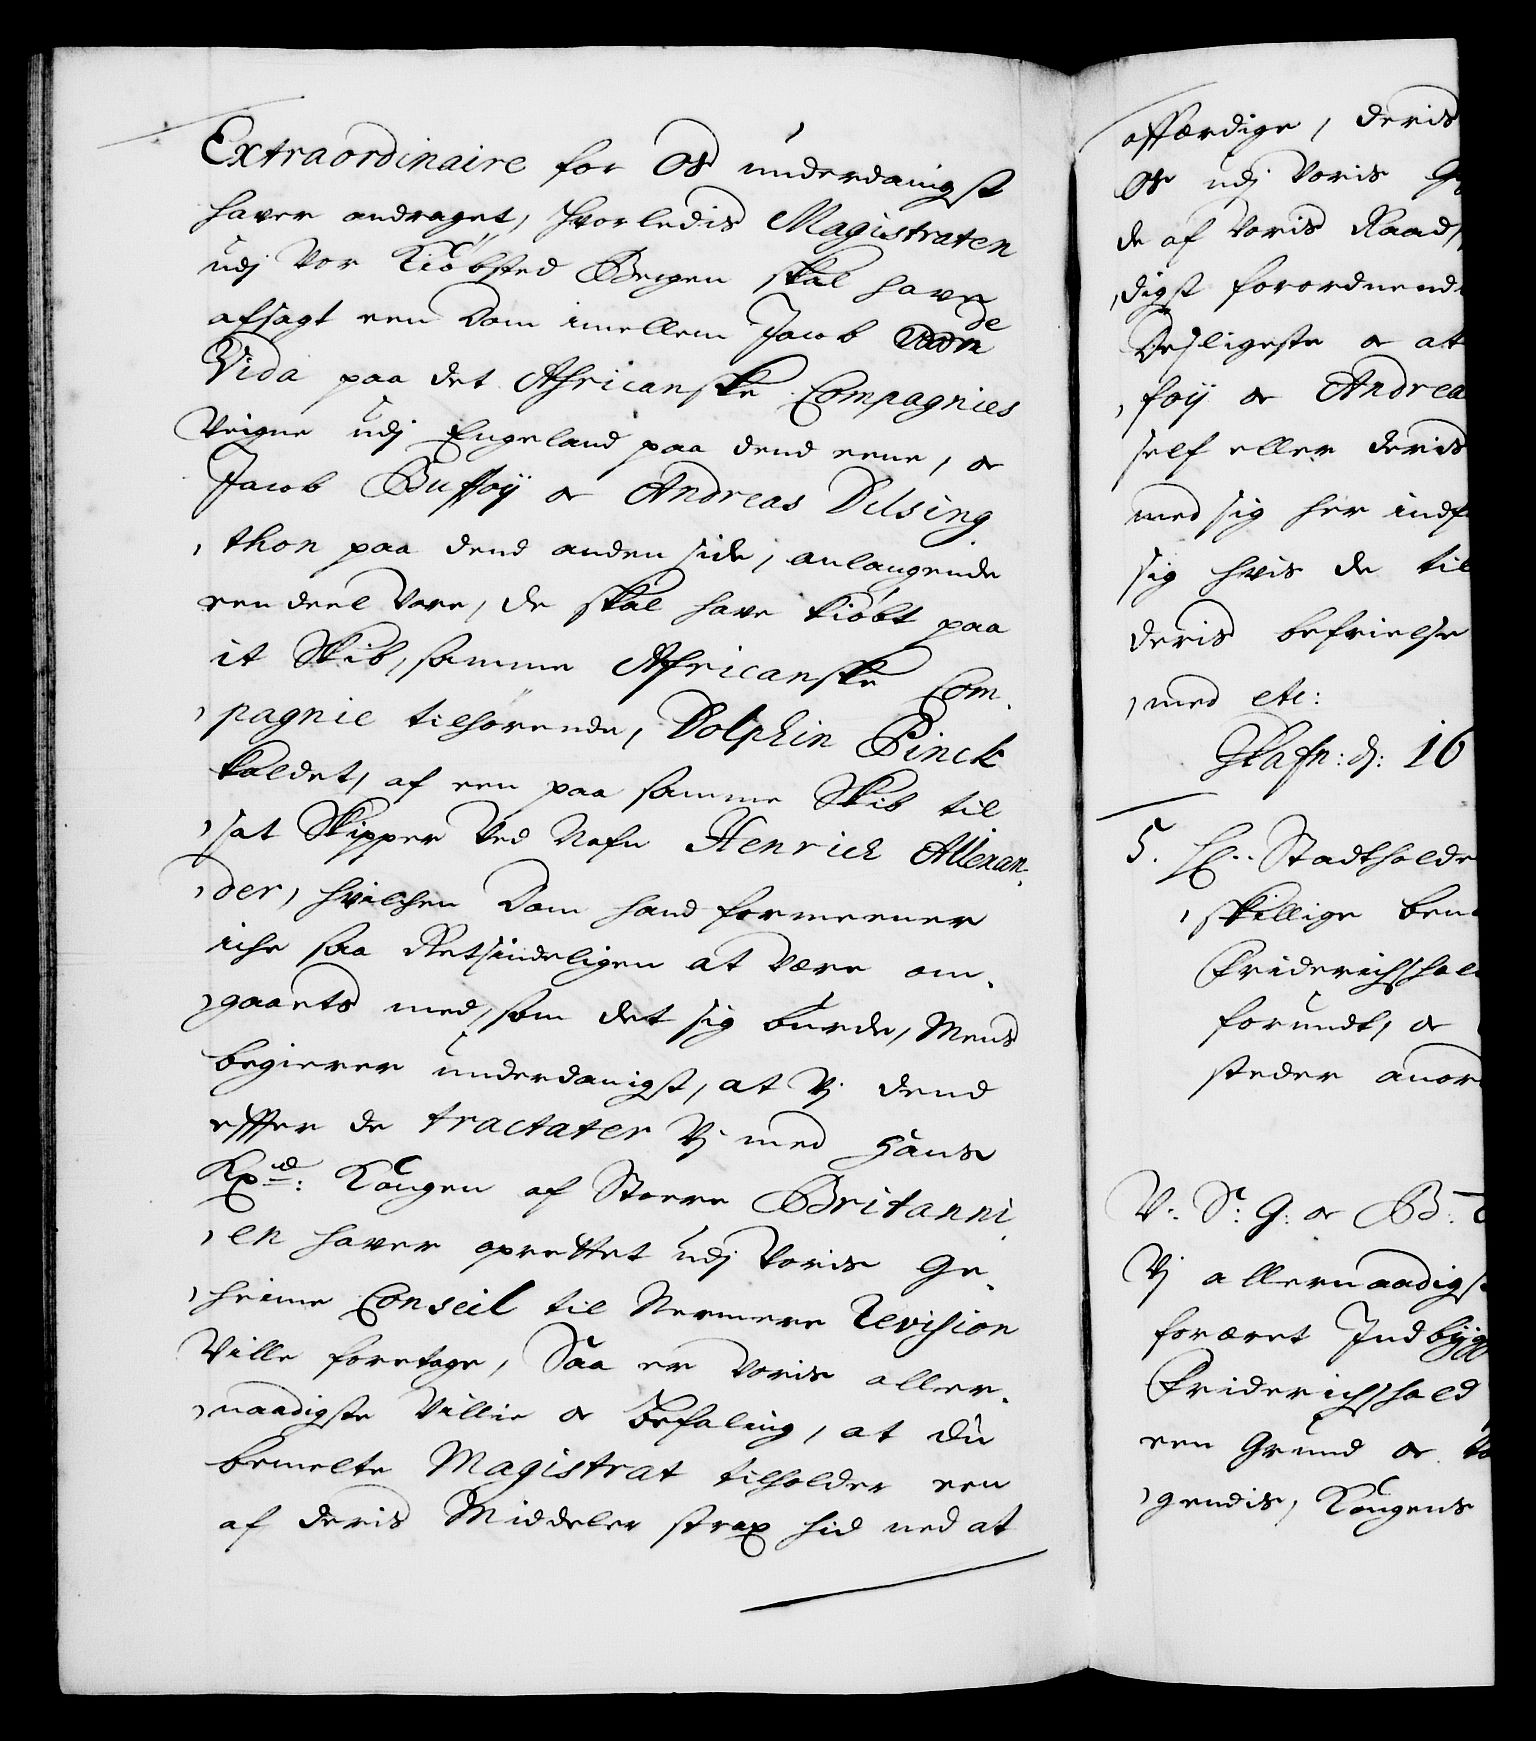 Extraordinaire for Os underdanigst
haver andraget, hvorledis Magistraten
udj Vor Kiøbsted Bergen skal have
afsagt een Dom imellem Jacob de
Vida paa det Africanske Compagnies
Veigne udj Engeland paa dend eene, oc
Jacob Buffoÿ oc Andreas Dilsing,
,thon paa dend anden side, anlangende
een deel Vare, de skal have kiøbt paa
it Skib, samme Africanske Com,
,pagnie tilhørende, Dolphin Pinck
kaldet, af een paa samme Skib til
,sat Skipper Ved Nafn Henrich Allexan,
,der, hvilchen Dom hand formeener
iche saa Retsindeligen at være om,
,gaaets med, som det sig burde, Mens
begierer underdanigst, at Vj dend
effter de tractater Vj med Hans
Kongen af Stoere Britanni,
,en haver oprettet udj Voris Ge,
,heime Conseil til Nermere Revision
Ville foretage, Saa er Voris aller,
,naadigste Villie oc Befaling, at du
bemelte Magistrat tilholder een
af deris Middeler strax hid ned at
affærdige, deris
Os udj Voris
de af Voris Raad,
,digst forordnend
Desligeste oc at
,foÿ oc Andrea
self eller deris
med sig her indf
sig hvis de til
deris befrielse
,med etc:
Hafn: d: 16
5. Hr. Stadtholde
,skillige ben
Friderichshal
forundt, oc
steder anor
V: S: G: oc B:
Vj allernaadigs
foræret Indbÿgg
Friderichshald
een Grund oc
,gendis, Kongens